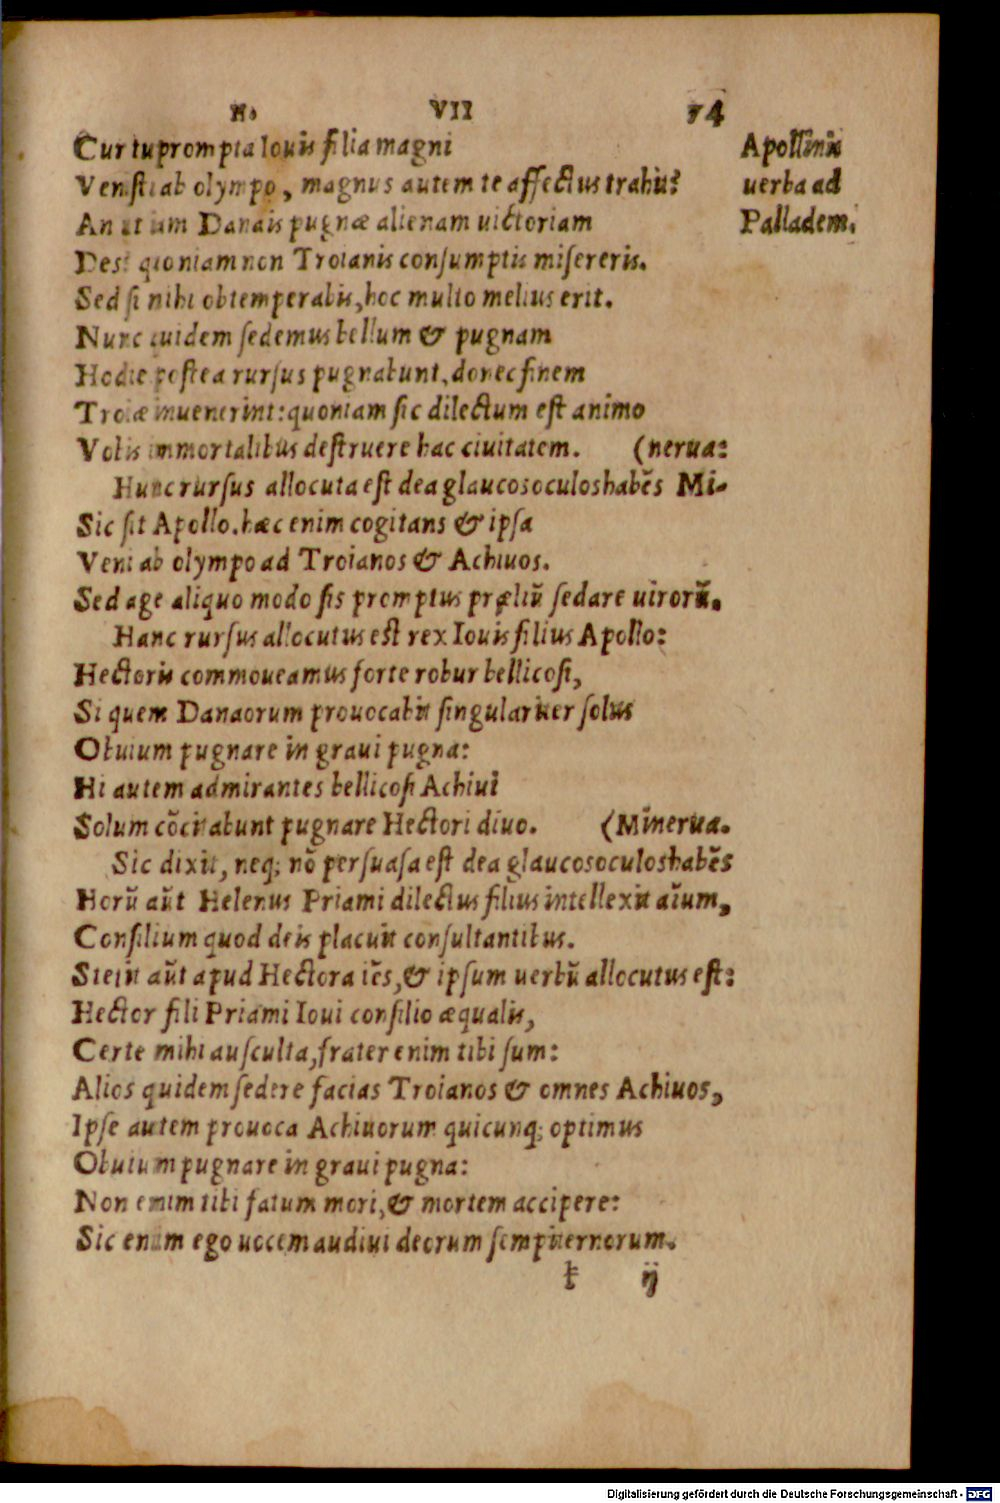 H. VII 74
Cur tu prompta Iouis filia magni
Venisti ab olympo, magnus autem te affectus trahit?
An ut iam Danais pugnæ alienam uictoriam
Des? quoniam non Troianis consumptis misereris.
Sed si mihi obtemperabis, hoc multo melius erit.
Nunc quidem sedemus bellum & pugnam
Hodie postea rursus pugnabunt, donec finem
Troiæ inuenerint: quoniam sic dilectum est animo
Vobis immortalibus destruere hac ciuitatem. (nerua:
Hunc rursus allocuta est dea glaucos oculos habẽs Mi-
Sic sit Apollo. hæc enim cogitans & ipsa
Veni ab olympo ad Troianos & Achiuos.
Sed age aliquo modo sis promptus præliũ sedare uirorũ.
Hanc rursus allocutus est rex Iouis filius Apollo:
Hectoris commoueamus forte robur bellicosi,
Si quem Danaorum prouocabit singulariter solus
Obuium pugnare in graui pugna:
Hi autem admirantes bellicosi Achiui
Solum cõcitabunt pugnare Hectori diuo. (Minerua.
Sic dixit, neq; nõ persuasa est dea glaucos oculos habẽs
Horũ aũt Helenus Priami dilectus filius intellexit aĩum,
Consilium quod deis placuit consultantibus.
Stetit aũt apud Hectora iẽs, & ipsum uerbũ allocutus est:
Hector fili Priami Ioui consilio æqualis,
Certe mihi ausculta, frater enim tibi sum:
Alios quidem sedere facias Troianos & omnes Achiuos,
Ipse autem prouoca Achiuorum quicunq; optimus
Obuium pugnare in graui pugna:
Non enim tibi fatum mori, & mortem accipere:
Sic enim ego uocem audiui deorum sempiternorum.
k ij
Apollinis
uerba ad
Palladem.
Digitalisierung gefördert durch die Deutsche Forschungsgemeinschaft - DFG